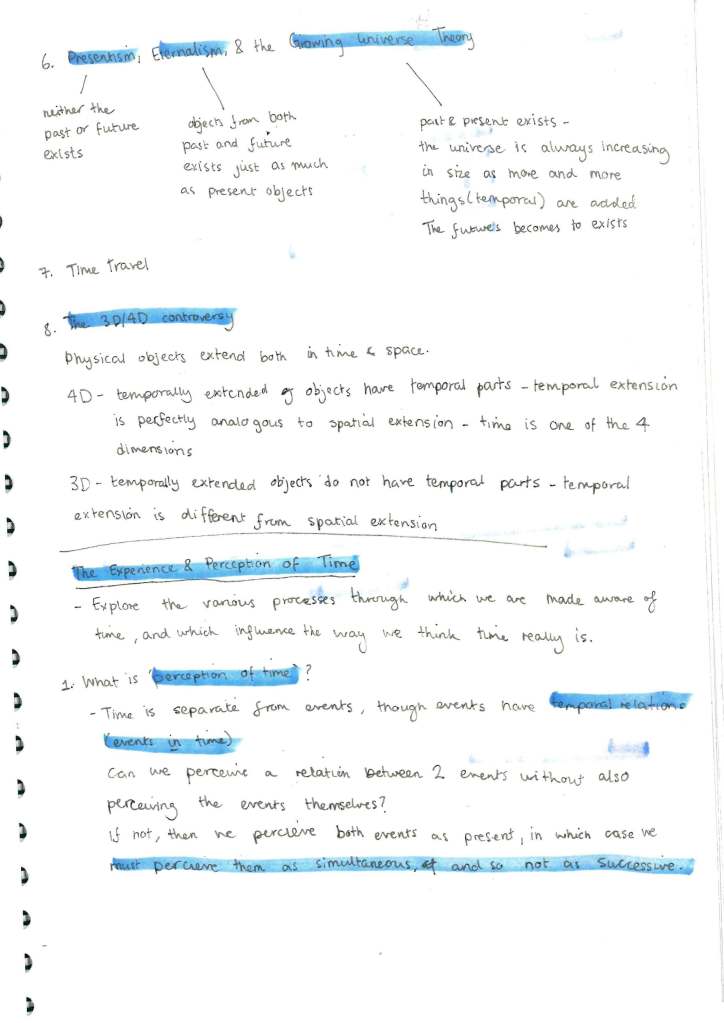 6. Presentism, Eternalism, & the Growing Universe Theory
neither the
past or future
exists
objects from both
past and future
exists just as much
as present objects
past & present exists -
the universe is always increasing
in size as more and more
things (temporal) are added
The future's becomes to exists
7. Time Travel
8. The 3D/4D controversy
Physical objects extend both in time & space.
4D - temporally extended of objects have temporal parts - temporal extension
is perfectly analogous to spatial extension - time is one of the 4
dimensions
3D - temporally extended objects do not have temporal parts - temporal
extension is different from spatial extension
The Experience & Perception of Time
- Explore the various processes through which we are made aware of
time, and which influence the way we think time really is.
1. What is 'perception of time'?
- Time is separate from events, though events have temporal relations
(events in time)
Can we perceive a relation between 2 events without also
perceiving the events themselves?
If not, then we percieve both events as present, in which case we
must percieve them as simultaneous, and so not as successive.